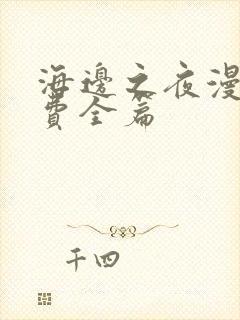 海邊之夜漫
費全篇
千四